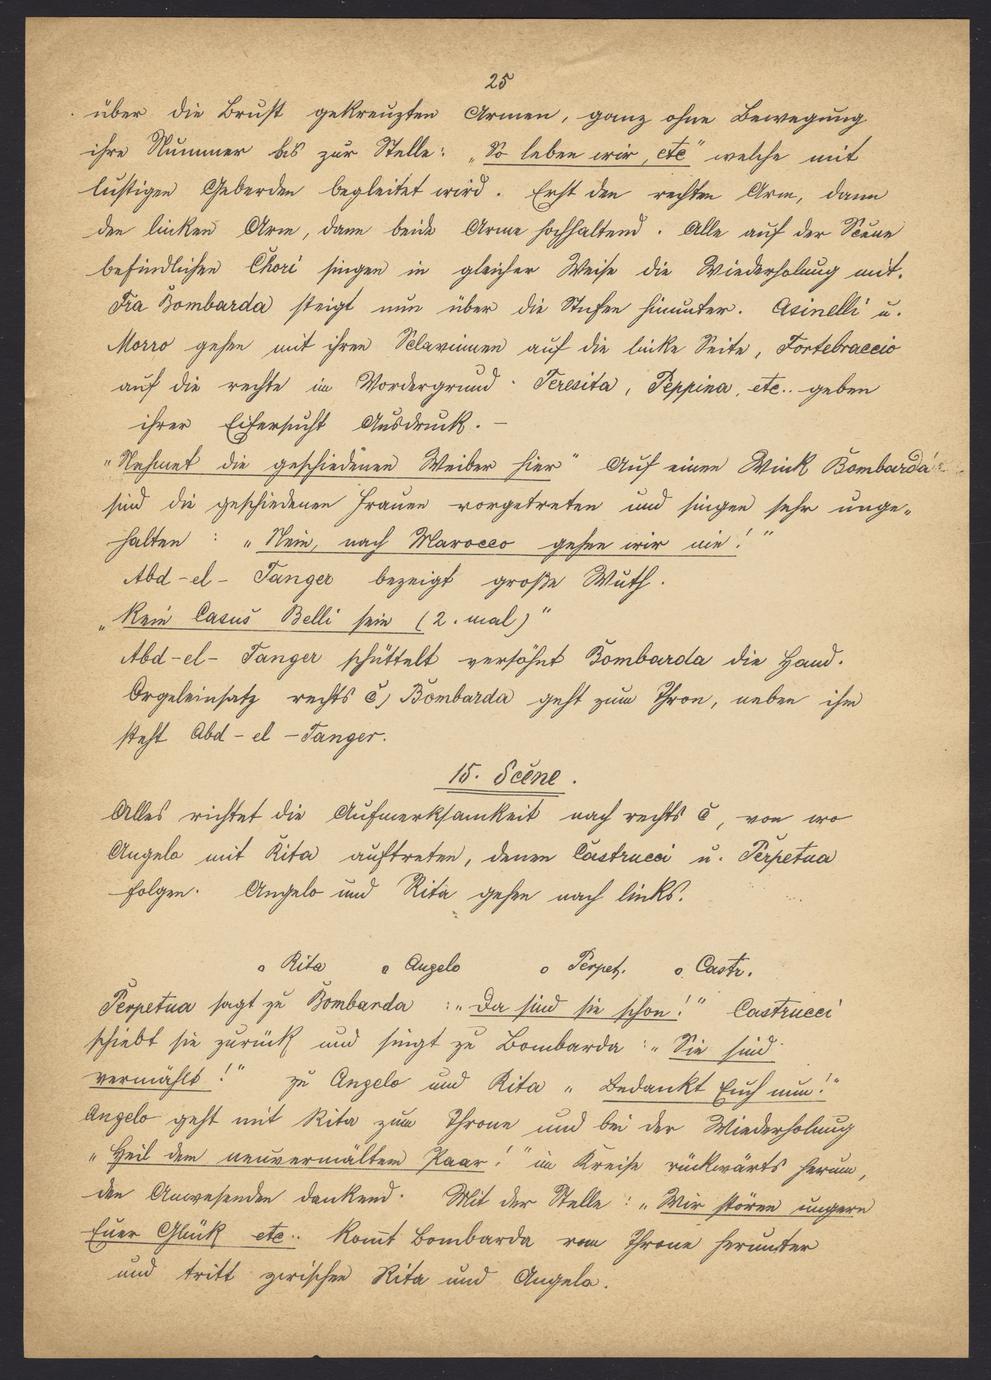 25
über die Brust gekreuzten Armen, ganz ohne Bewegung
ihre Nummer bis zur Stelle: „So leben wir, etc" welche mit
lustigen Geberden begleitet wird. Erst den rechten Arm, dann
den linken Arm, dann beide Arme hochhaltend. Alle auf der Scene
befindlichen Chori singen in gleicher Weise die Wiederholung mit.
Fra Bombarda steigt nun über die Stufen hinunter. Asinelli u.
Morro gehen mit ihren Sclavinnen auf die linke Seite, Fortebraccio
auf die rechte im Vordergrund. Teresita, Peppina, etc.. geben
ihrer Eifersucht Ausdruck. –
„Nehmet die geschiedenen Weiber hier" Auf einen Wink Bombarda's
sind die geschiedenen Frauen vorgetreten und singen sehr unge-
halten : „Nein, nach Marocco gehen wir nie!"
Abd-el-Tanger bezeigt große Wuth.
„Kein Casus Belli sein (2. mal)"
Abd-el-Tanger schüttelt versöhnt Bombarda die Hand.
Orgeleinsatz rechts C) Bombarda geht zum Thron, neben ihm
steht Abd-el-Tanger.
15. Scene.
Alles richtet die Aufmerksamkeit nach rechts C, von wo
Angelo mit Rita auftreten, denen Castrucci u. Perpetua
folgen. Angelo und Rita gehen nach links.
o Rita o Angelo o Perpet. o Castr.
Perpetua sagt zu Bombarda :„Da sind sie schon!" Castrucci
schiebt sie zurück und singt zu Bombarda :„Sie sind
vermählt!" zu Angelo und Rita „Bedankt Euch nun!"
Angelo geht mit Rita zum Throne und bei der Wiederholung
„Heil dem neuvermältem Paar!" im Kreise rückwärts herum,
den Anwesenden dankend. Mit der Stelle :„Wir stören ungern
Euer Glück etc.. kom̄t Bombarda vom Throne herunter
und tritt zwischen Rita und Angelo.